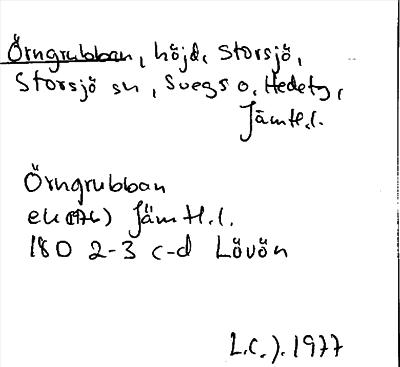 Örngrubban, höjd, Storsjö,
Storsjö sn, Svegs o. Hedets,
Jämtl.l.
Örngrubban
ek (1976) Jämtl.l.
18D 2-3 c-d Lövön
L.C.J. 1977